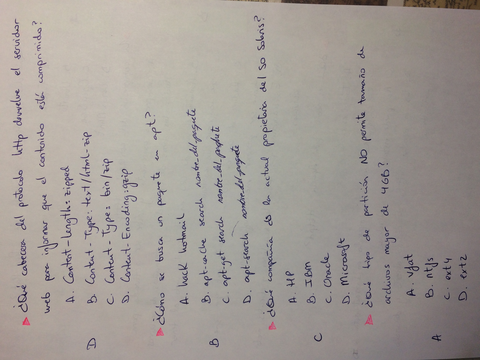 ¿Qué cabecera del protocolo http devuelve el servidor
web para informar que el contenido está comprimido?
A. Content-Length: zipped
B. Content-Type: text/html-zip
C. Content-Type: bin/zip
D. Content-Encoding: gzip
D
¿Cómo se busca un paquete en apt?
A. hack hotmail
B. apt-cache search nombre_del_paquete
C. apt-get search nombre_del_paquete
D. apt-search nombre_del_paquete
B
¿Qué compañía es la actual propietaria del SO Solaris?
A. HP
B. IBM
C. Oracle
D. Microsoft
C
¿Qué tipo de partición NO permite tamaño de
archivos mayor de 4GB?
A. vfat
B. ntfs
C. ext4
D. ext2
A